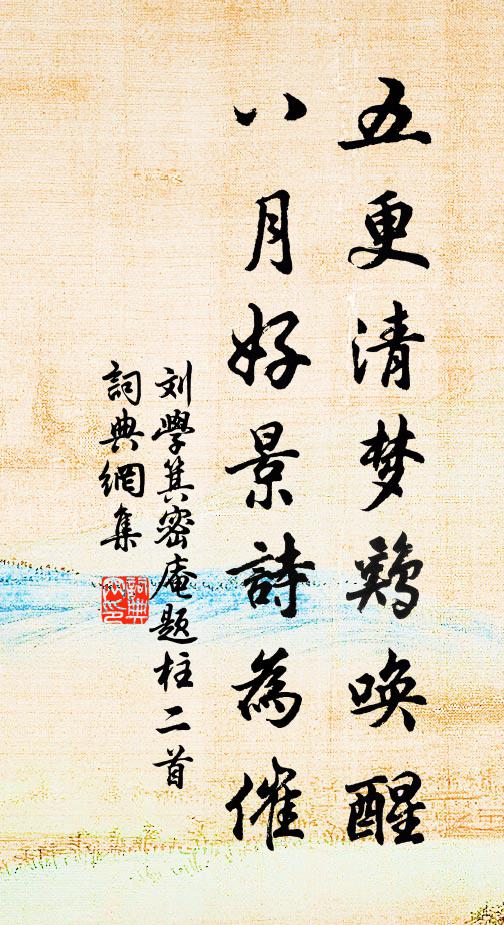 五更清梦鷄唤醒
八月好景詩為催
刘學箕密庵题柱二首
詞典網集